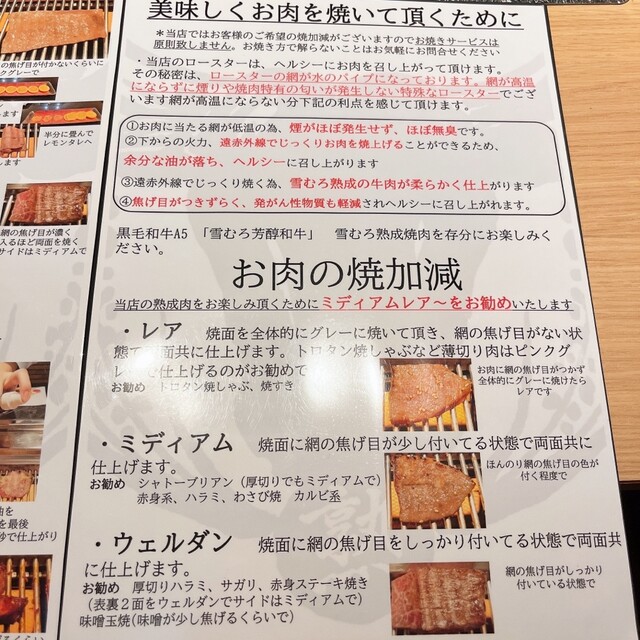 の焦げ目が付かないくらいに
クグレーで
半分に畳んで
レモンタレへ
します
面の焦げ目が濃く
入るほど両面を焼く
サイドはミディアムで
油を
を最後
秒で仕上がり
美味しくお肉を焼いて頂くために
＊当店ではお客様のご希望の焼加減がございますのでお焼きサービスは
原則致しません。お焼き方で解らないことはお気軽にお問合せください
・当店のロースターは、ヘルシーにお肉を召し上がって頂けます。
その秘密は、ロースターの網が水のパイプになっております。網が高温
にならずに煙りや焼肉特有の匂いが発生しない特殊なロースターでござ
います網が高温にならない分下記の利点を感じて頂けます。
①お肉に当たる網が低温の為、煙がほぼ発生せず、ほぼ無臭です。
②下からの火力、遠赤外線でじっくりお肉を焼上げることができるため、
余分な油が落ち、ヘルシーに召し上がります
③遠赤外線でじっくり焼く為、雪むろ熟成の牛肉が柔らかく仕上がります
④焦げ目がつきずらく、発がん性物質も軽減されヘルシーに召し上がれます。
黒毛和牛A5 「雪むろ芳醇和牛」 雪むろ熟成焼肉を存分にお楽しみく
ださい。
お肉の焼加減
当店の熟成肉をお楽しみ頂くためにミディアムレア～をお勧めいたします
・レア 焼面を全体的にグレーに焼いて頂き、網の焦げ目がない状
態で両面共に仕上げます。トロタン焼しゃぶなど薄切り肉はピンクグ
レーで仕上げるのがお勧めで
お勧め トロタン焼しゃぶ、焼すき
お肉に網の焦げ目がつかず
全体的にグレーに焼けたら
レアです
・ミディアム 焼面に網の焦げ目が少し付いてる状態で両面共に
仕上げます。
お勧め シャトーブリアン（厚切りでもミディアムで）
赤身系、ハラミ、わさび焼 カルビ系
ほんのり網の焦げ目の色が
付く程度で
・ウェルダン 焼面に網の焦げ目をしっかり付いてる状態で両面共
に仕上げます。
お勧め 厚切りハラミ、サガリ、赤身ステーキ焼き
（表裏２面をウェルダンでサイドはミディアムで）
味噌玉焼（味噌が少し焦げるくらいで）
網の焦げ目がしっかり
付いている状態で